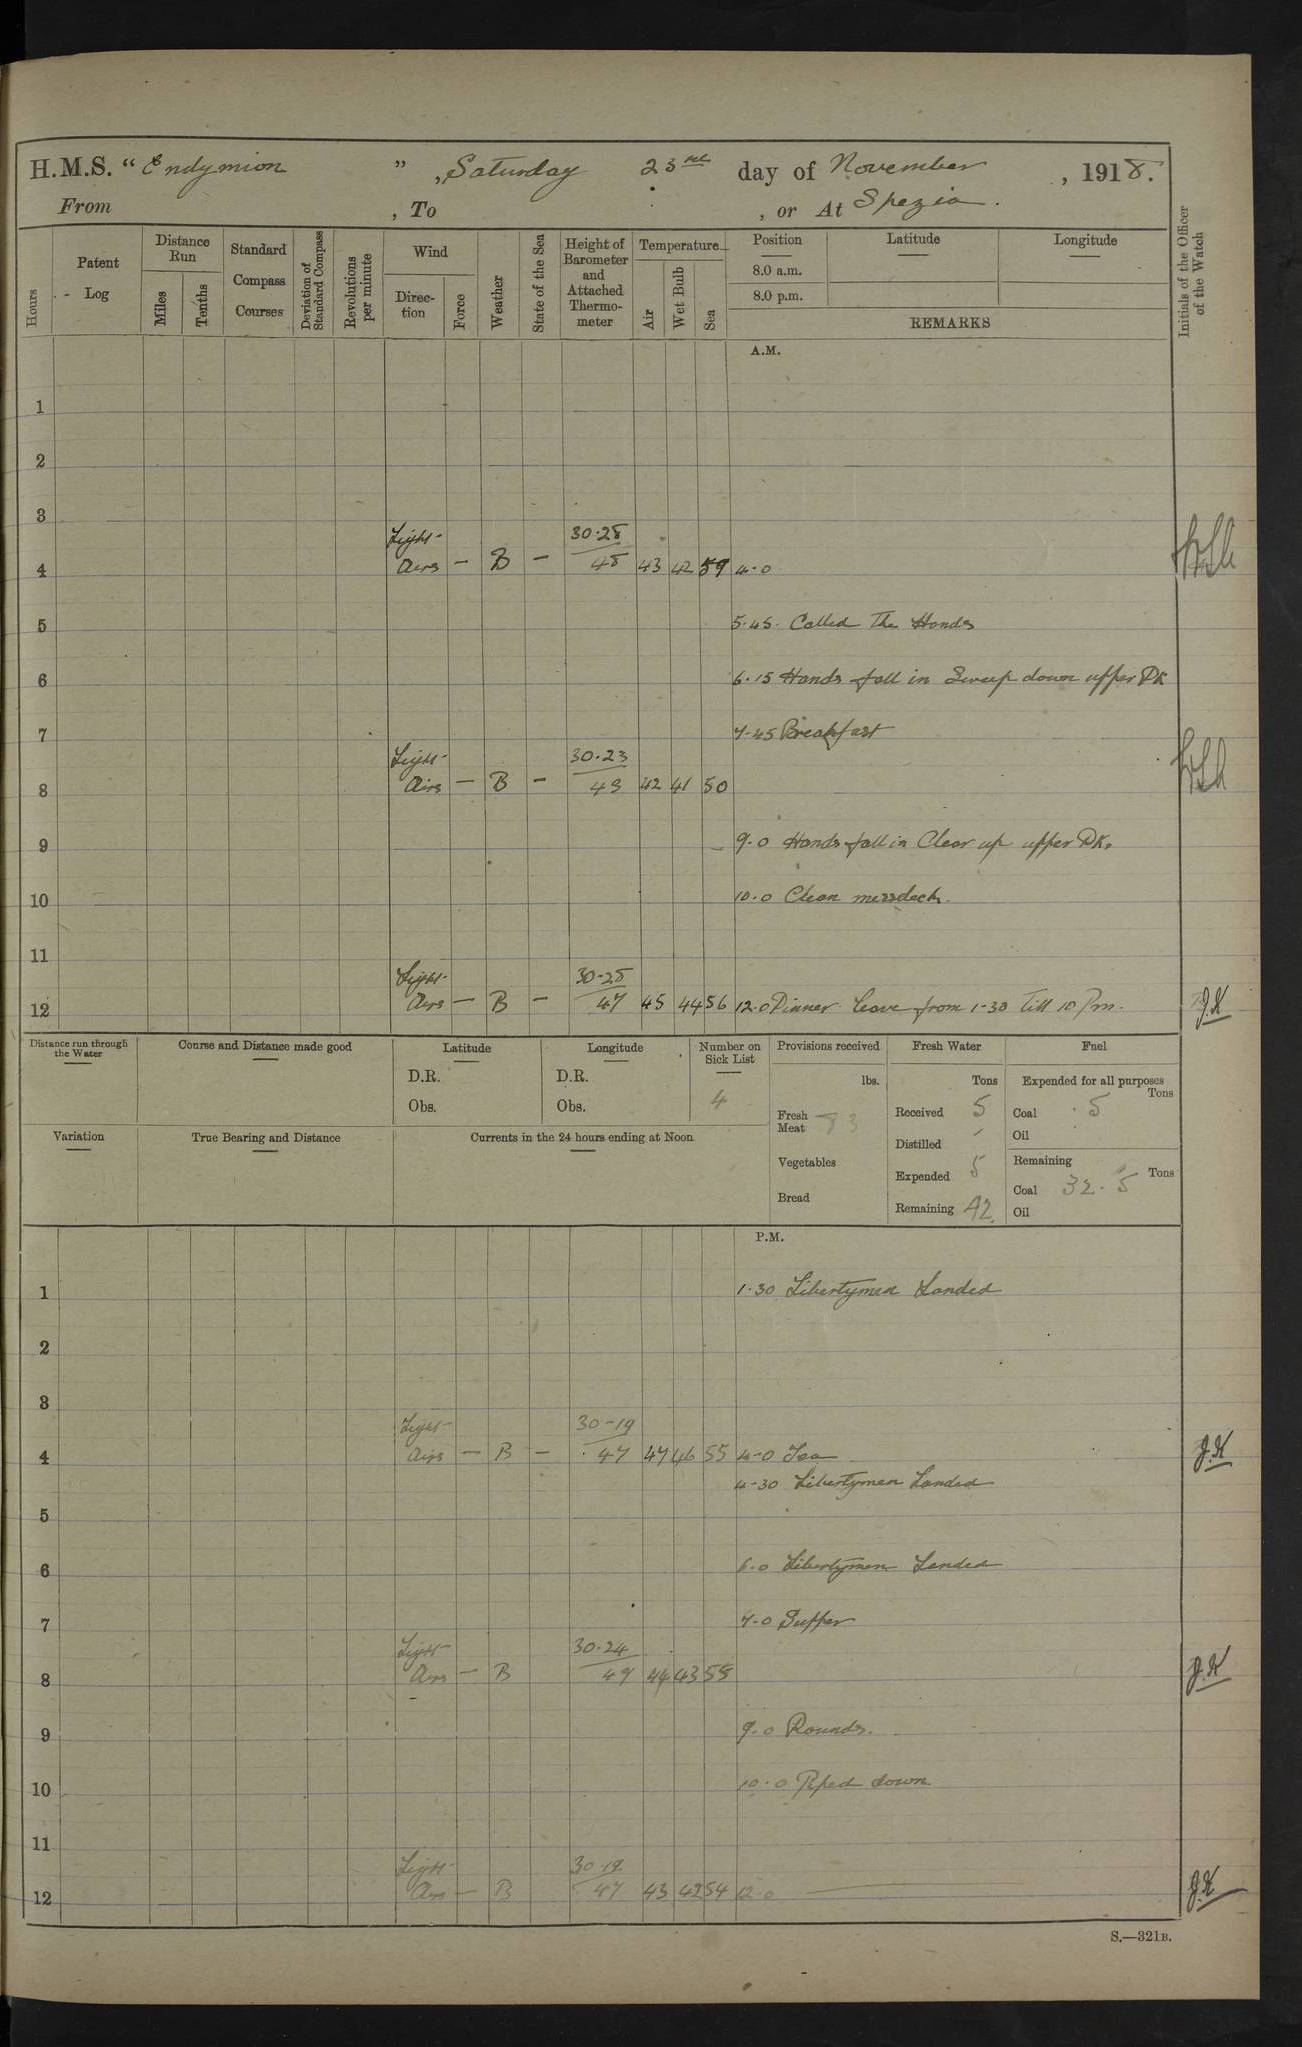 H.M.S. "Endymion", Saturday 23rd day of November, 1918.
From , To , or At Spezia.
Hours
Patent Log
Distance Run
Miles
Tenths
Standard Compass Courses
Deviation of Standard Compass
Revolutions per minute
Wind
Direction
Force
Weather
State of the Sea
Height of Barometer and Attached Thermometer
Temperature
Air
Wet Bulb
Sea
Position
Latitude
Longitude
8.0 a.m.
8.0 p.m.
REMARKS
Initials of the Officer of the Watch
A.M.
1
2
3
Light 30.28
4 Airs — B — 48 43 42 59 4-0
5 5.45. Called The Hands
6 6.15 Hands fall in Sweep down upper Dk
7 7.45 Breakfast
Light 30.23
8 Airs — B — 49 42 41 50
9 9.0 Hands fall in Clear up upper Dk.
10 10.0 Clean messdeck.
11
Light 30-25
12 Airs — B — 47 45 44 56 12.0 Dinner Leave from 1-30 Till 10 Pm. J.K
Distance run through the Water
Course and Distance made good
Latitude
D.R.
Obs.
Longitude
D.R.
Obs.
Number on Sick List
4
Provisions received
lbs.
Fresh Meat 83
Vegetables
Bread
Fresh Water
Tons
Received 5
Distilled -
Expended 5
Remaining 42
Fuel
Expended for all purposes
Tons
Coal .5
Oil
Remaining
Tons
Coal 32.5
Oil
Variation
True Bearing and Distance
Currents in the 24 hours ending at Noon
P.M.
1 1.30 Libertymen Landed
2
3
Light 30-19
4 Airs — B — 47 47 46 55 4-0 Tea J.K
4-30 Libertymen Landed
5
6 6.0 Libertymen Landed
7 7.0 Supper
Light 30.24
8 Airs — B 49 44 43 55 J.K
9 9.0 Rounds.
10 10.0 Piped down
11
Light 30.19
12 Airs — B 47 43 42 54 12.0 J.K
S.—321B.